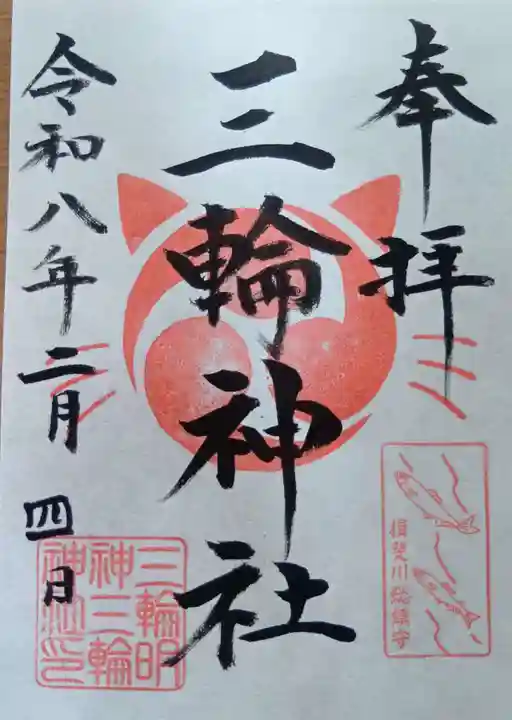 奉拝
三輪神社
令和八年二月四日
揖斐川総鎮守
三輪明
神三輪
神社印